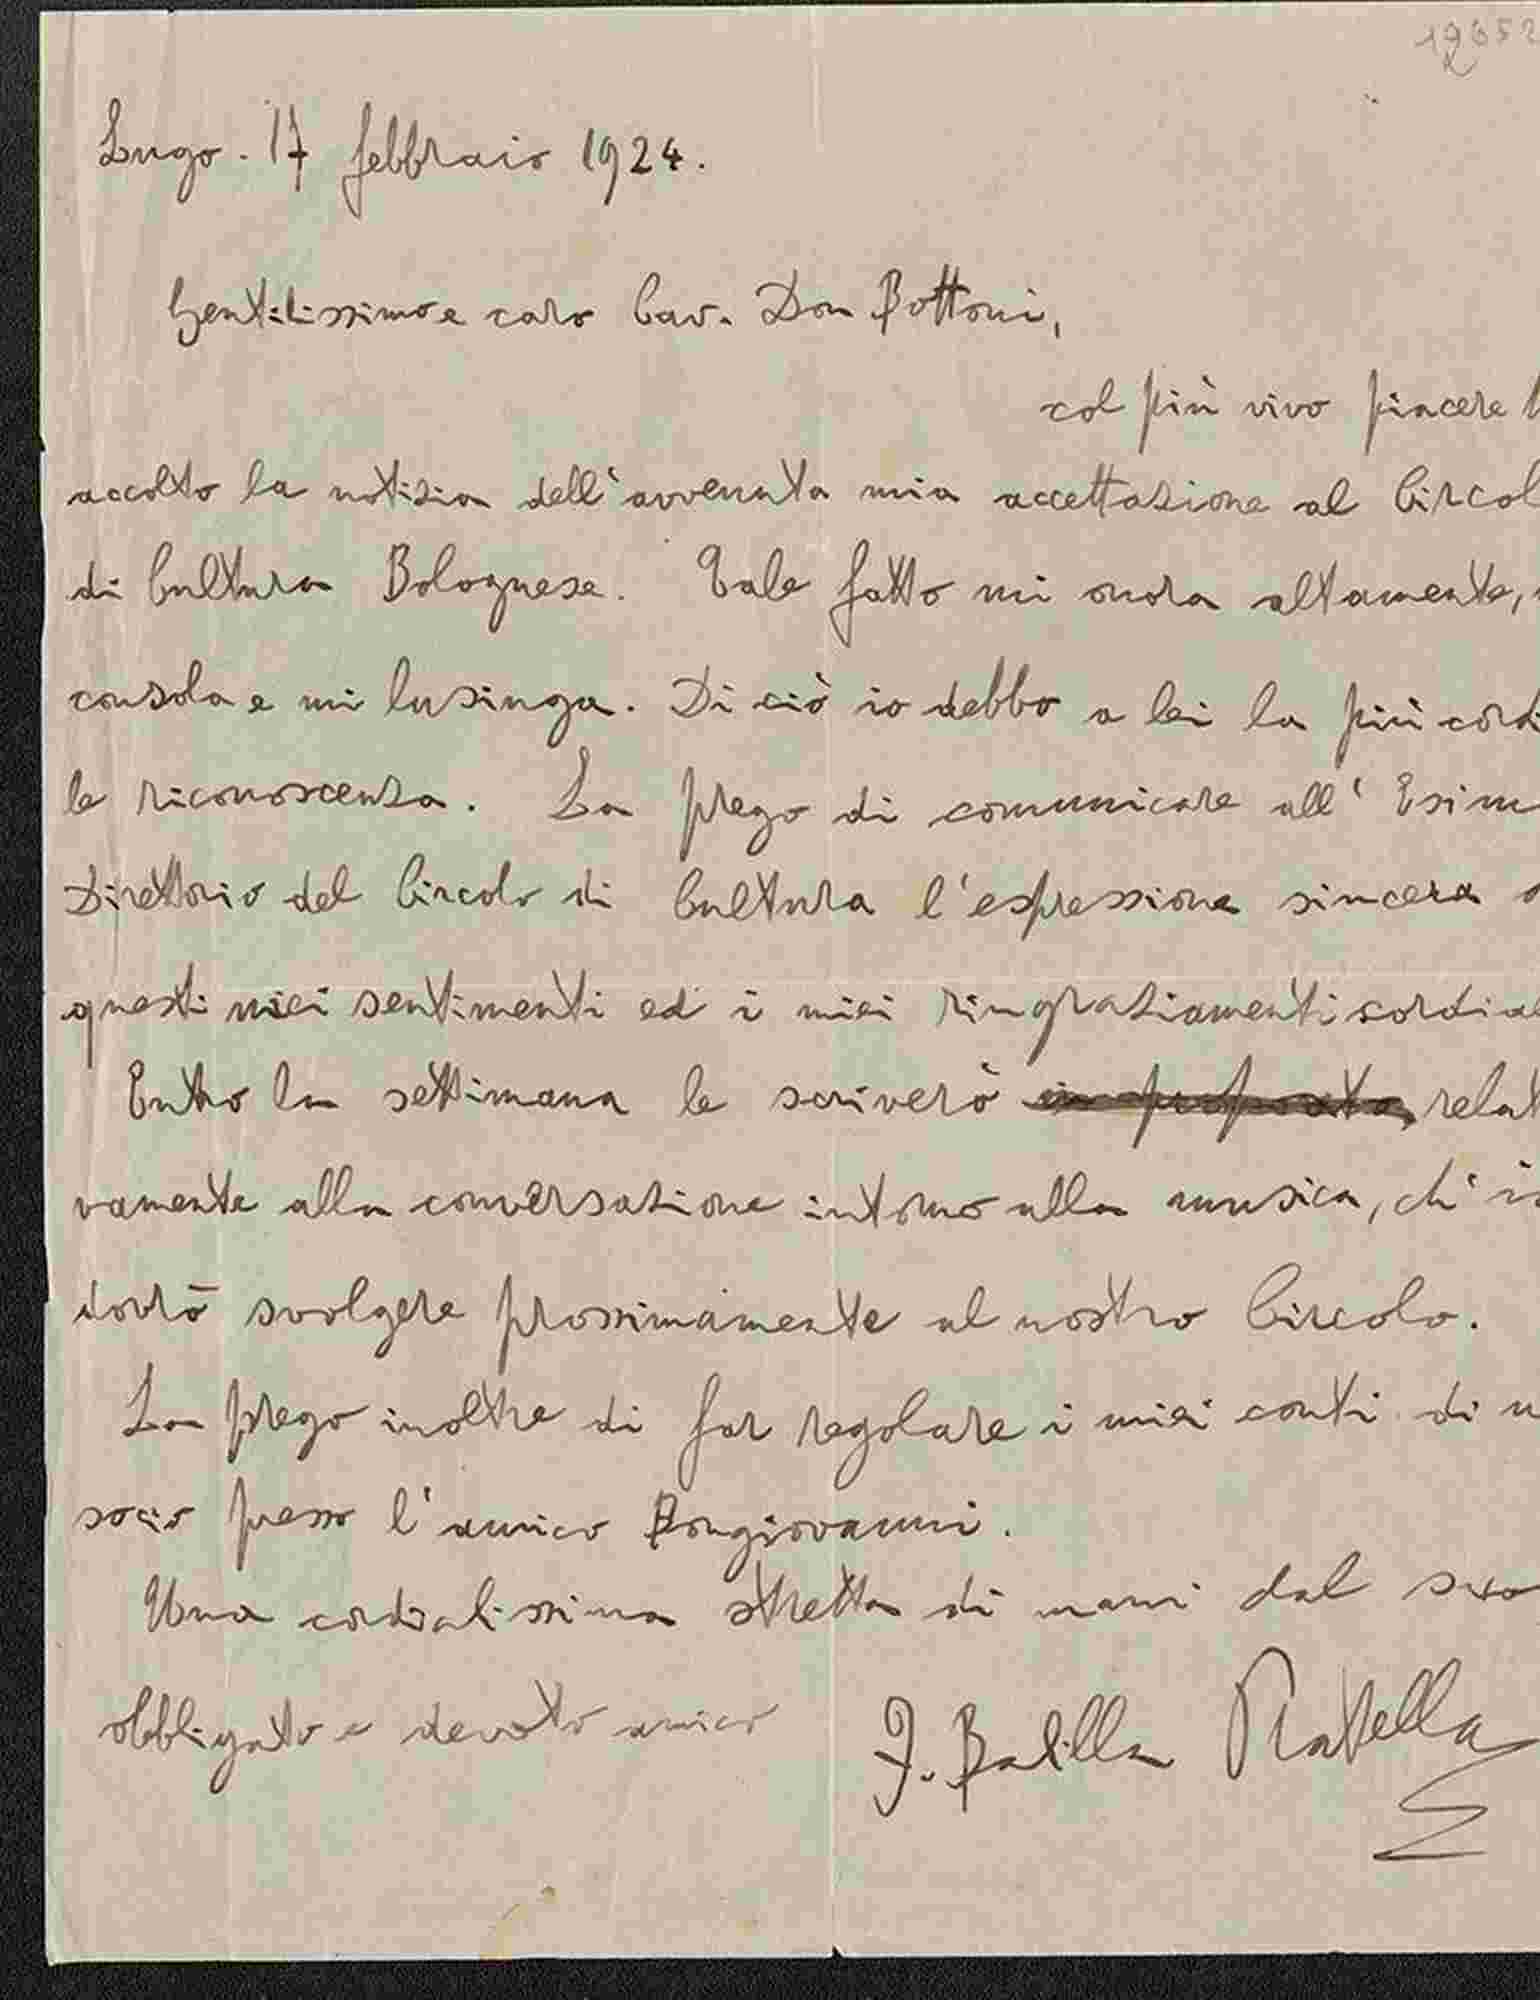 19652
Lugo. 17 febbraio 1924.
Gentilissimo e caro Cav. Don Bottoni,
col più vivo piacere
accolto la notizia dell'avvenuta mia accettazione al Circol
di Cultura Bolognese. Tale fatto mi onora altamente,
consola e mi lusinga. Di ciò io debbo a lei la più cordi
le riconoscenza. La prego di comunicare all'Esim
Direttorio del Circolo di Cultura l'espressione sincera
questi miei sentimenti ed i miei ringraziamenti cordial
Entro la settimana le scriverò in proposito, relat
vamente alla conversazione intorno alla musica, ch'i
dovrò svolgere prossimamente al nostro Circolo.
La prego inoltre di far regolare i miei conti di n
socio presso l'amico Bongiovanni.
Una cordialissima stretta di mani dal suo
obbligato e devoto amico F. Balilla Pratella